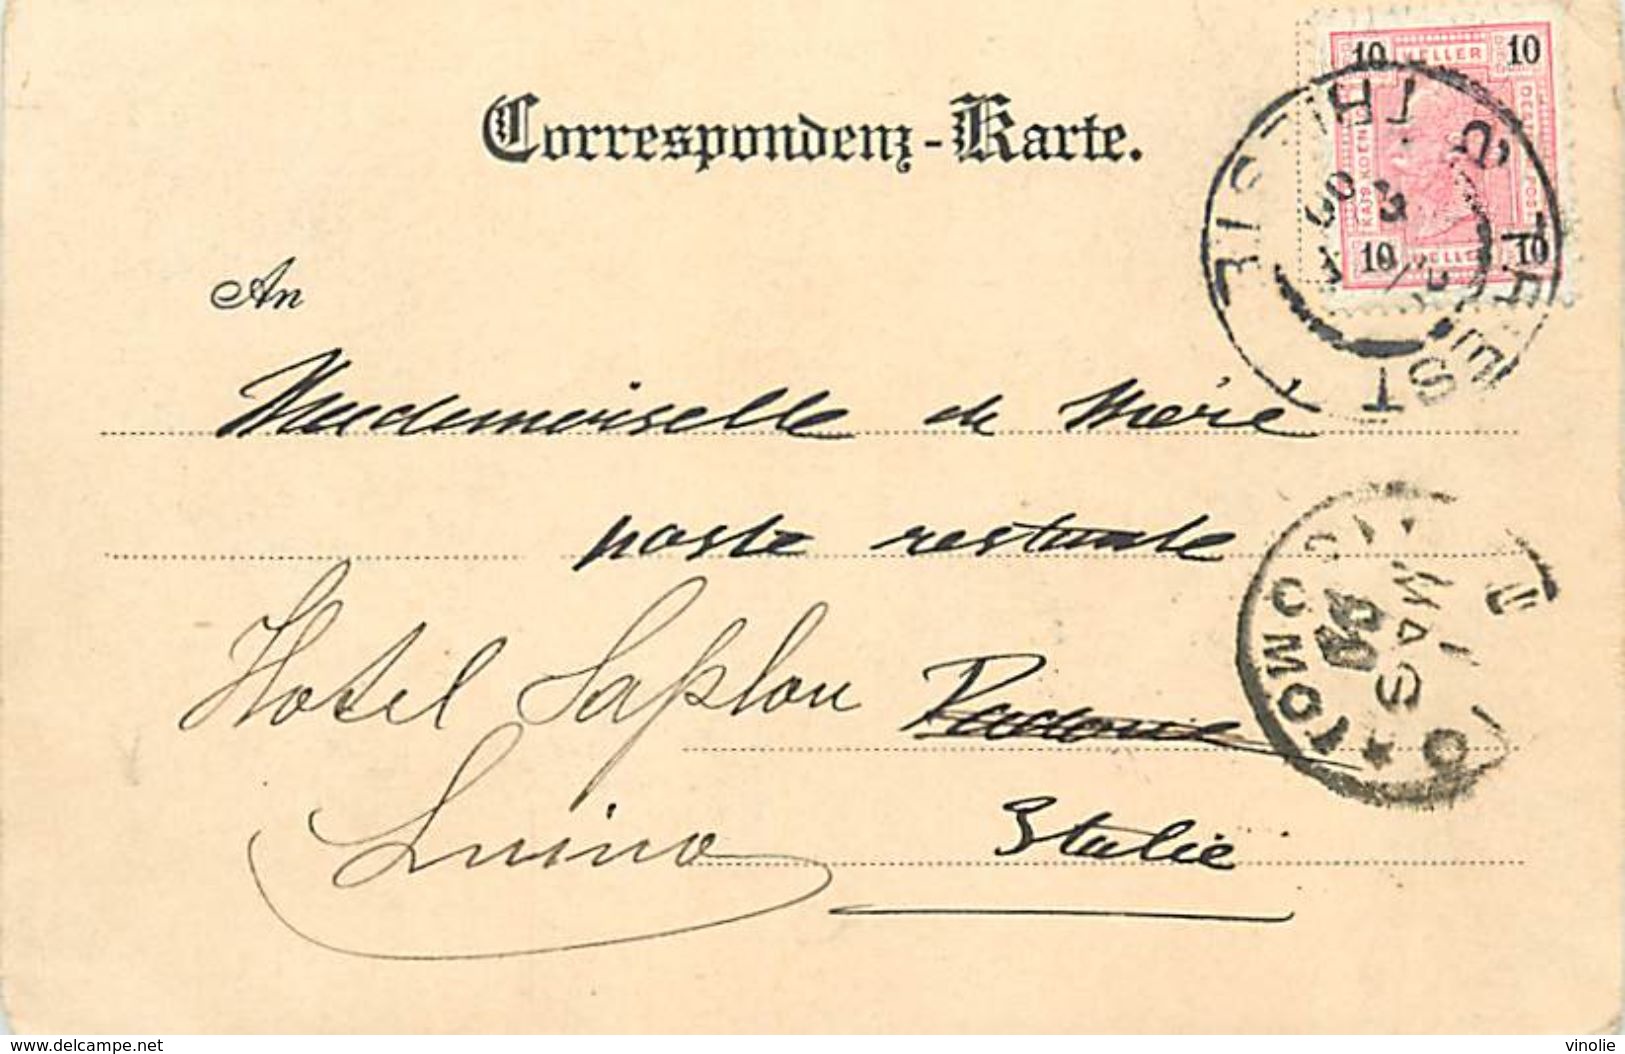 Correspondenz-Karte.
10 HELLER 10
10 HELLER 10
TRIEST
TRIESTE
An
Mademoiselle de Méré
poste restante
Hotel Saplon Padoue
Luino Italie
(COMO)
MAG
00
www.delcampe.net
vinolie